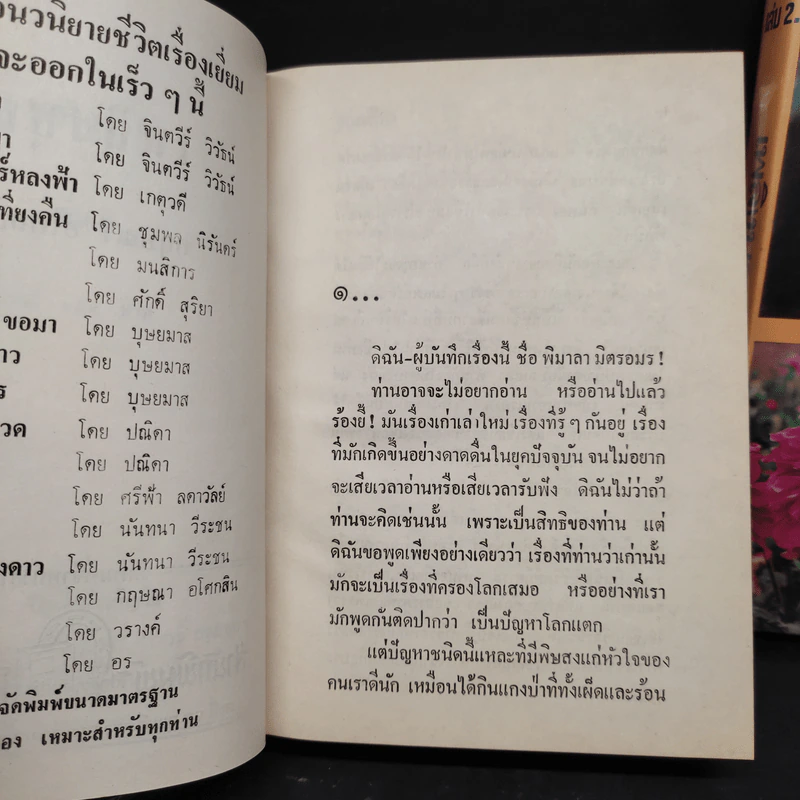 นวนิยายชีวิตเรื่องเยี่ยม
จะออกในเร็ว ๆ นี้
โดย จินตวีร์ วิวัธน์
โดย จินตวีร์ วิวัธน์
หลงฟ้า โดย เกตุวดี
เที่ยงคืน โดย ชุมพล นิรันดร์
โดย มนสิการ
โดย ศักดิ์ สุริยา
ขอมา โดย บุษยมาส
โดย บุษยมาส
โดย บุษยมาส
โดย ปณิดา
โดย ปณิดา
โดย ศรีฟ้า ลดาวัลย์
โดย นันทนา วีระชน
งดาว โดย นันทนา วีระชน
โดย กฤษณา อโศกสิน
โดย วรางค์
โดย อร
จัดพิมพ์ขนาดมาตรฐาน
เหมาะสำหรับทุกท่าน
๑...
ดิฉัน-ผู้บันทึกเรื่องนี้ ชื่อ พิมาลา มิตรอมร !
ท่านอาจจะไม่อยากอ่าน หรืออ่านไปแล้ว
ร้องยี้ ! มันเรื่องเก่าเล่าใหม่ เรื่องที่รู้ ๆ กันอยู่ เรื่อง
ที่มักเกิดขึ้นอย่างดาดดื่นในยุคปัจจุบัน จนไม่อยาก
จะเสียเวลาอ่านหรือเสียเวลารับฟัง ดิฉันไม่ว่าถ้า
ท่านจะคิดเช่นนั้น เพราะเป็นสิทธิของท่าน แต่
ดิฉันขอพูดเพียงอย่างเดียวว่า เรื่องที่ท่านว่าเก่านั้น
มักจะเป็นเรื่องที่ครองโลกเสมอ หรืออย่างที่เรา
มักพูดกันติดปากว่า เป็นปัญหาโลกแตก
แต่ปัญหาชนิดนี้แหละที่มีพิษสงแก่หัวใจของ
คนเราดีนัก เหมือนได้กินแกงป่าที่ทั้งเผ็ดและร้อน
เล่ม 2